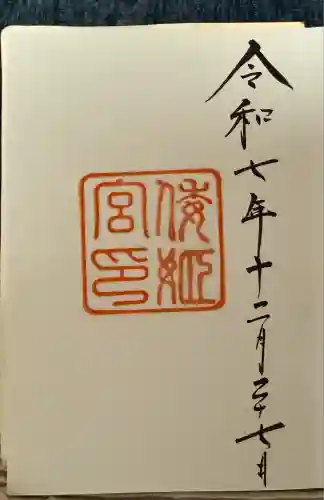 令和七年十二月二十七日
倭姫
宮印